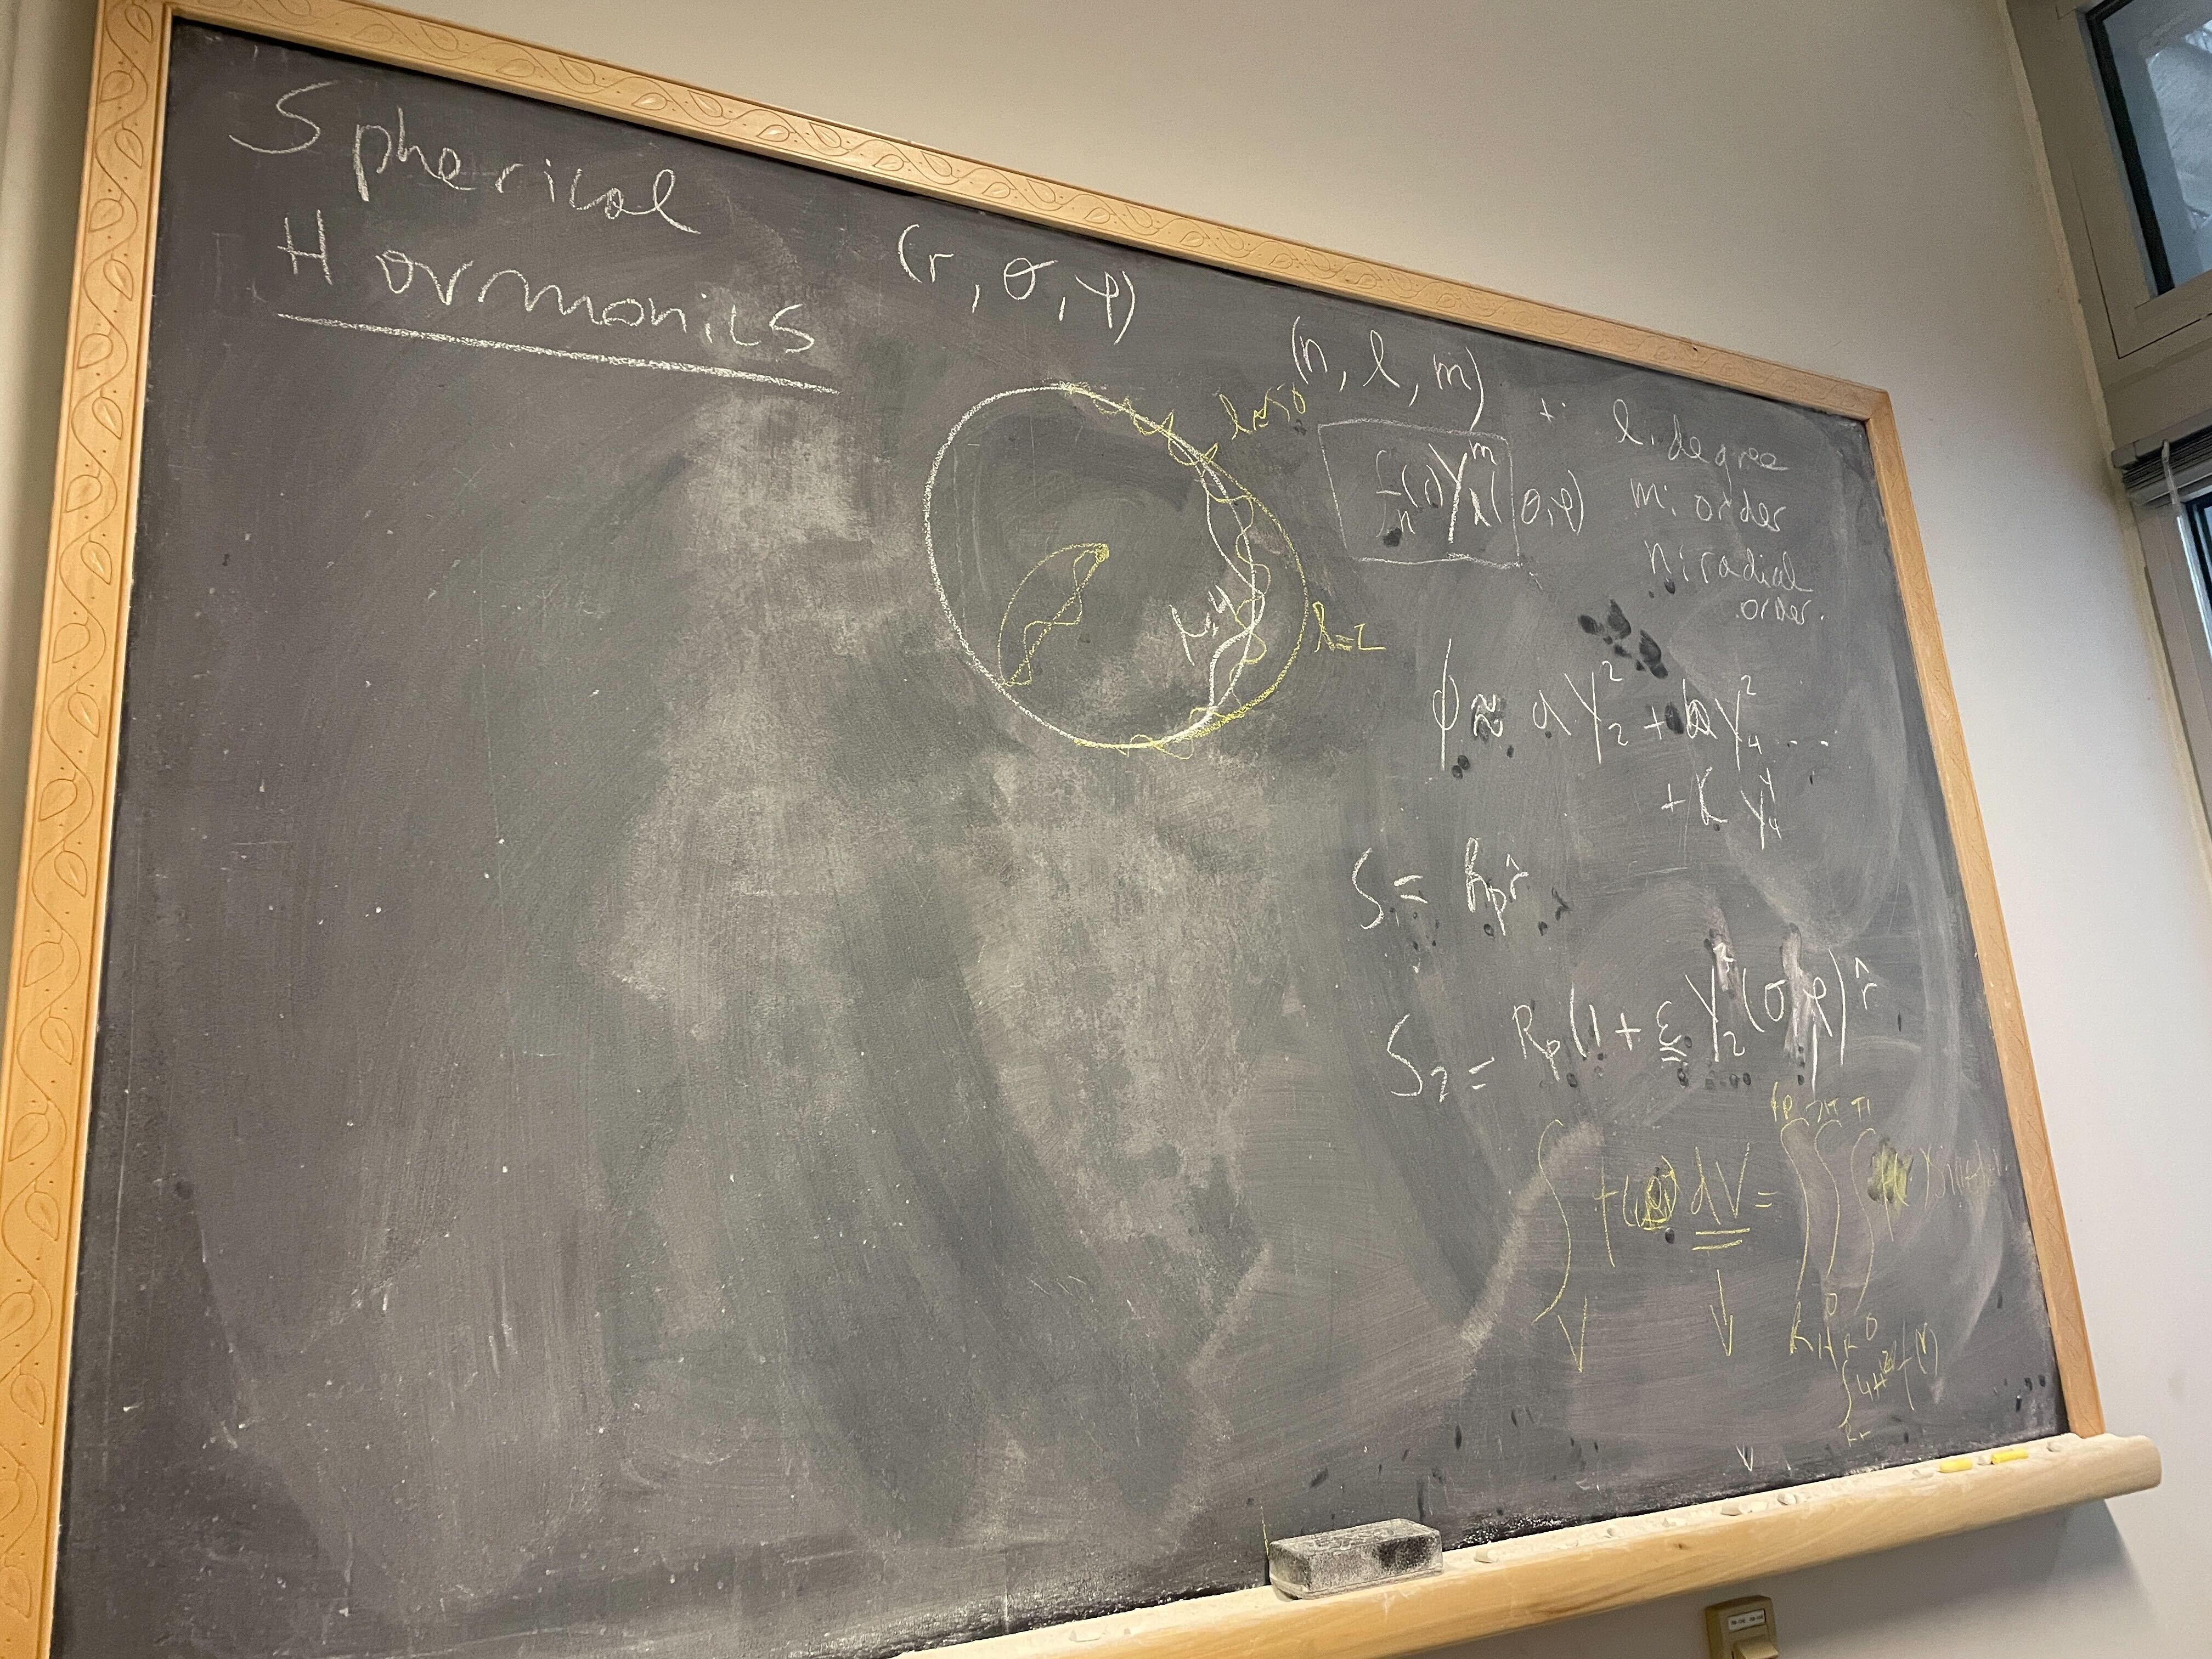 Spherical
Harmonics
(r, θ, φ)
(n, l, m)
l=50
f_n(r) Y_l^m (θ, φ)
l: degree
m: order
n: radial
order.
l=4
l=2
ϕ ≈ a Y_2^2 + b Y_4^2 ...
+ K Y_4^4
S = R_p r̂
S_2 = R_p (1 + ε Y_2^2 (θ, φ) r̂
∫ f( ) dV = ∫∫∫
V